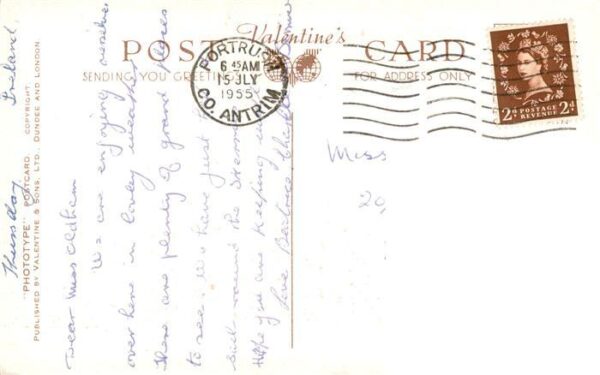 Valentine's
POST CARD
SENDING YOU GREETINGS
FOR ADDRESS ONLY
PORTRUSH
6 45 AM
15 JLY
1955
CO. ANTRIM
2D POSTAGE REVENUE 2D
"PHOTOTYPE" POSTCARD COPYRIGHT
PUBLISHED BY VALENTINE & SONS, LTD., DUNDEE AND LONDON.
Thursday Ireland.
Dear Miss Oldham
We are enjoying ourselves
over here in lovely weather
there are plenty of grand places
to see. We have just
round the
Hope you are keeping well
love
Miss
20,